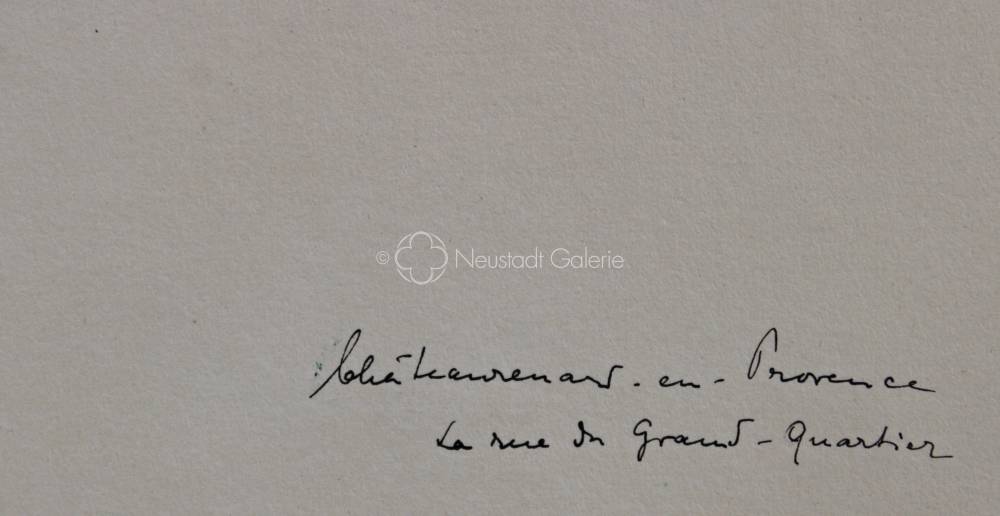 © Neustadt Galerie
Châteaurenard-en-Provence
La rue du Grand-Quartier